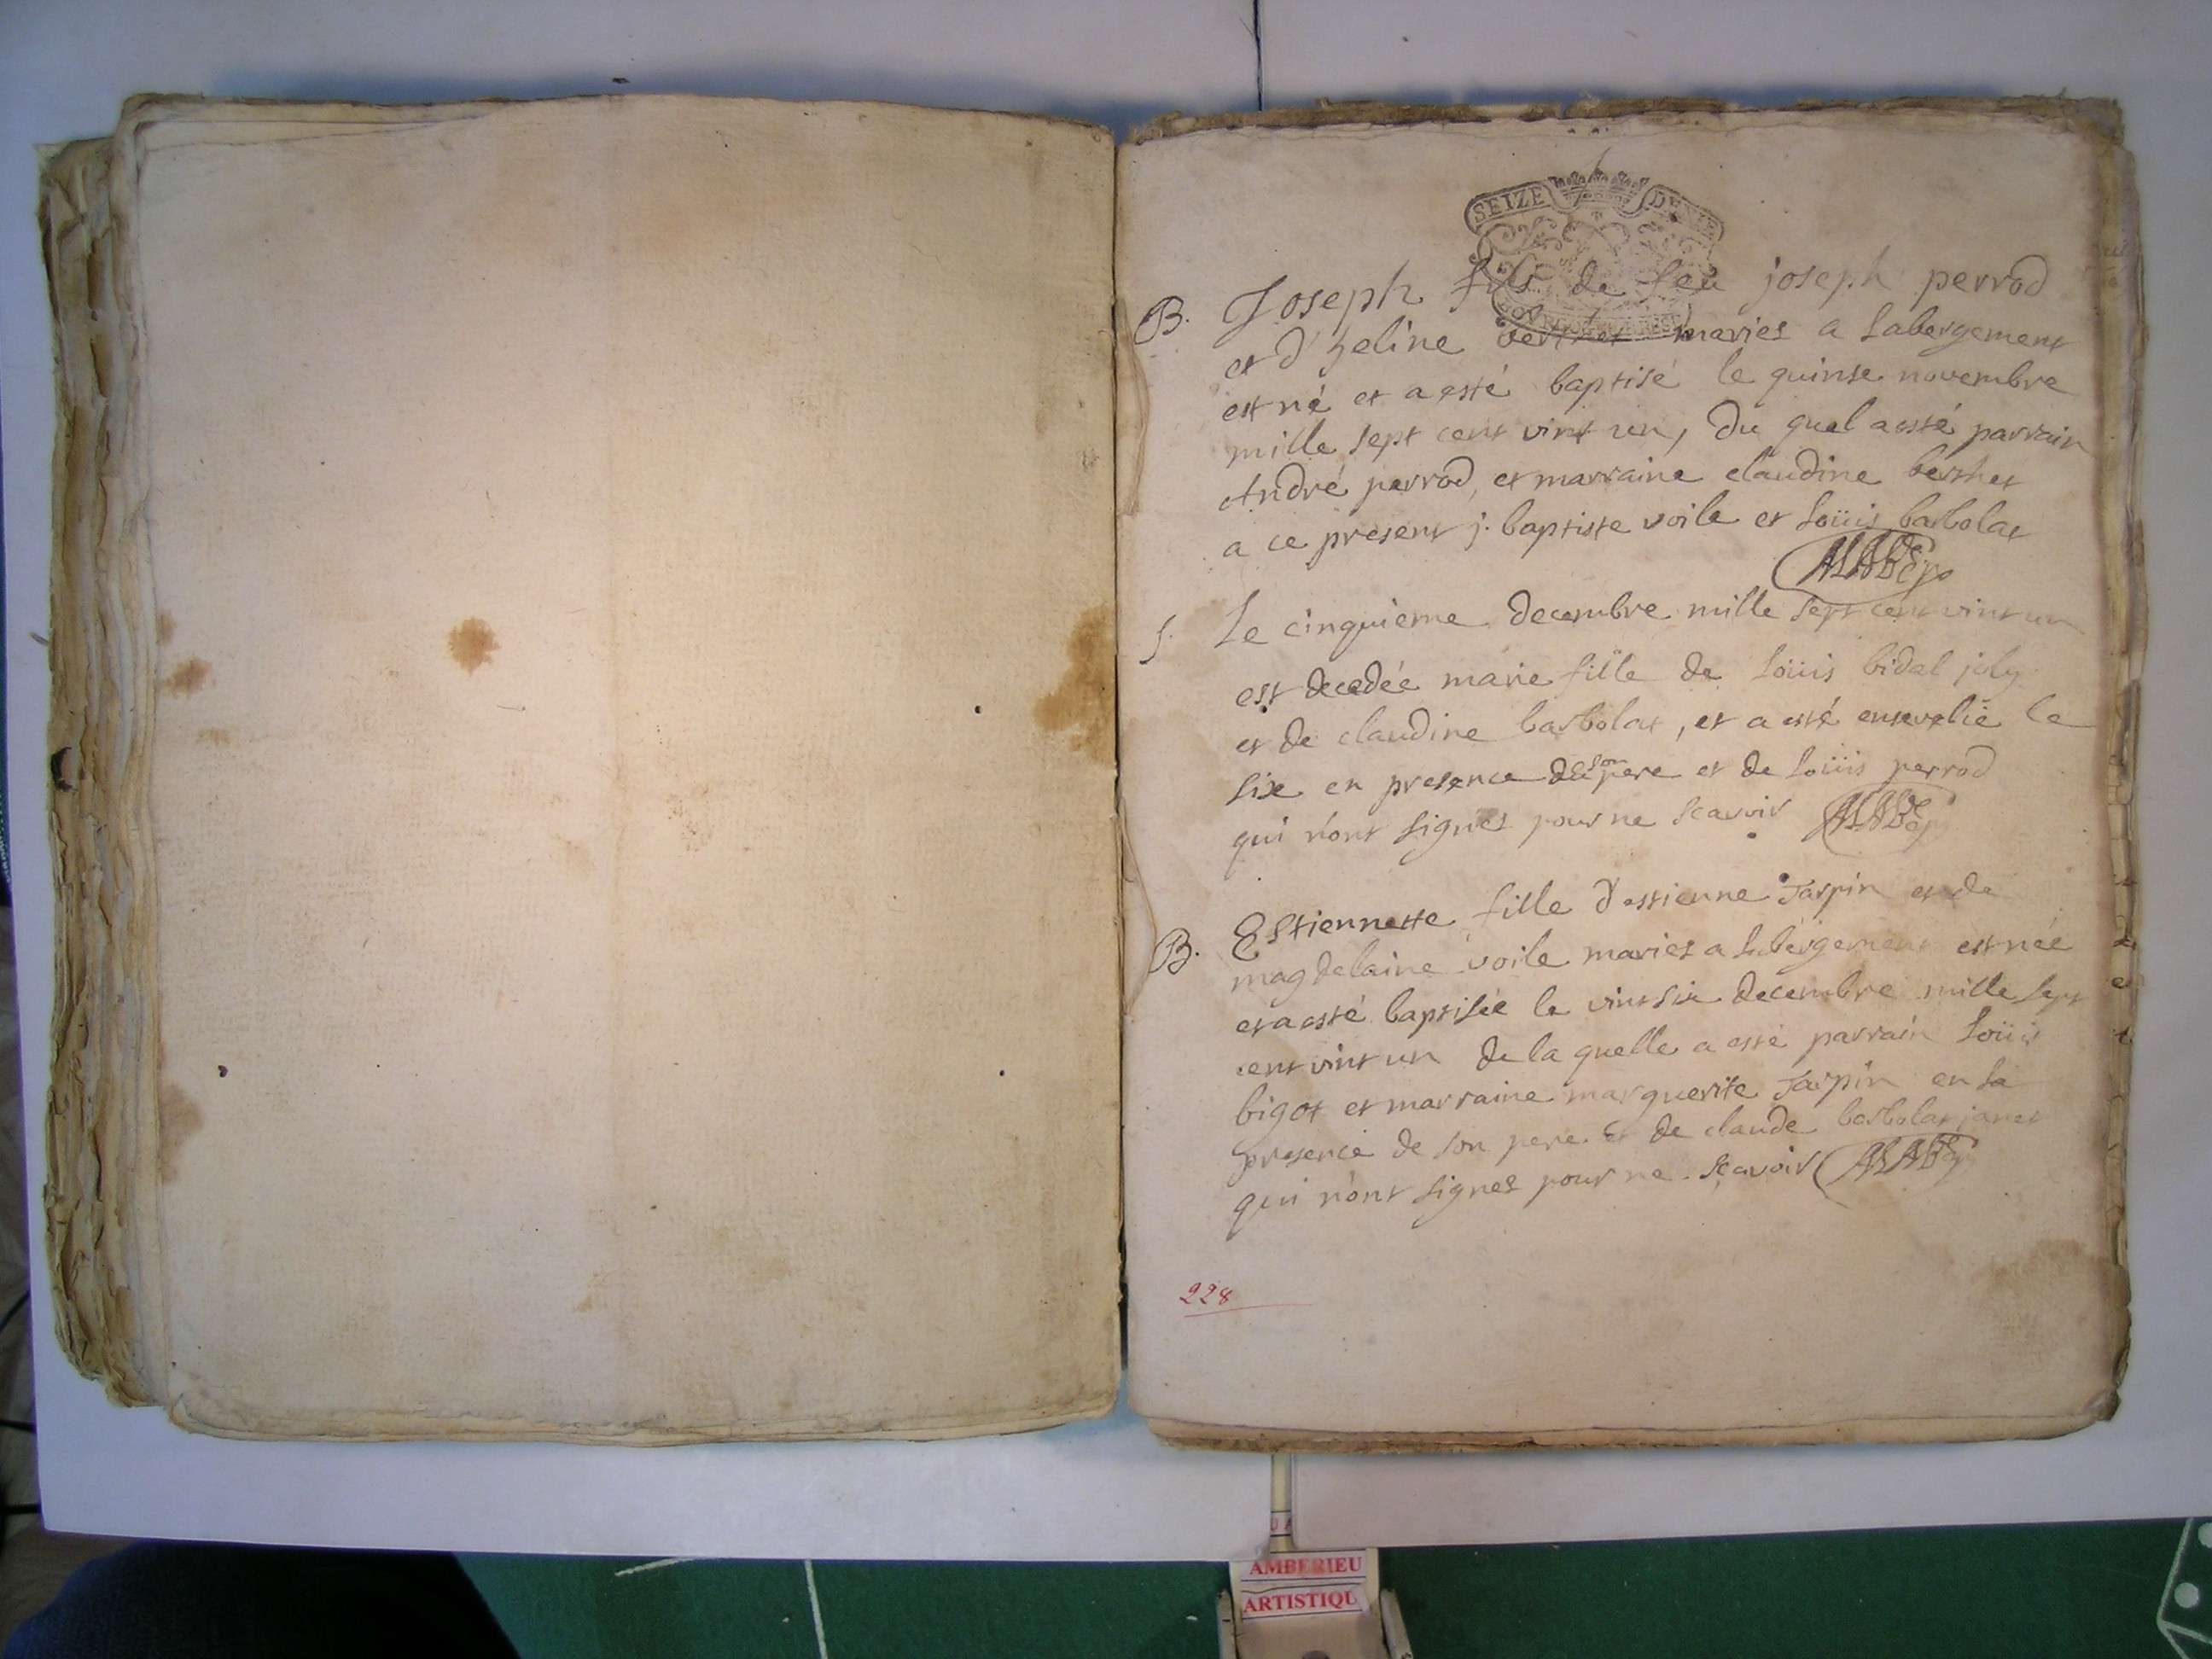 SEIZE DEN
B. Joseph fils de feu joseph perrod
et d'heline berthet maries a Labergement
est né et a esté baptisé le quinse novembre
mille sept cent vint un, du quel a esté parrain
André perrod, et marraine claudine berthet
a ce present j. baptiste voile et Loüis barbolat
S. Le cinquieme decembre mille sept cent vint un
est decedée marie fille de Loüis bidal joly
et de claudine barbolat, et a esté ensevelie le
six en presence de son pere et de Loüis perrod
qui n'ont signes pour ne scavoir
B. Estiennette fille d'estienne Tarpin et de
magdelaine voile maries a Labergement est née
et a esté baptisée le vint six decembre mille sept
cent vint un de la quelle a esté parrain Loüis
bigot et marraine marguerite Tarpin en la
presence de son pere et de claude barbolat janet
qui n'ont signes pour ne scavoir
228
AMBERIEU
ARTISTIQU